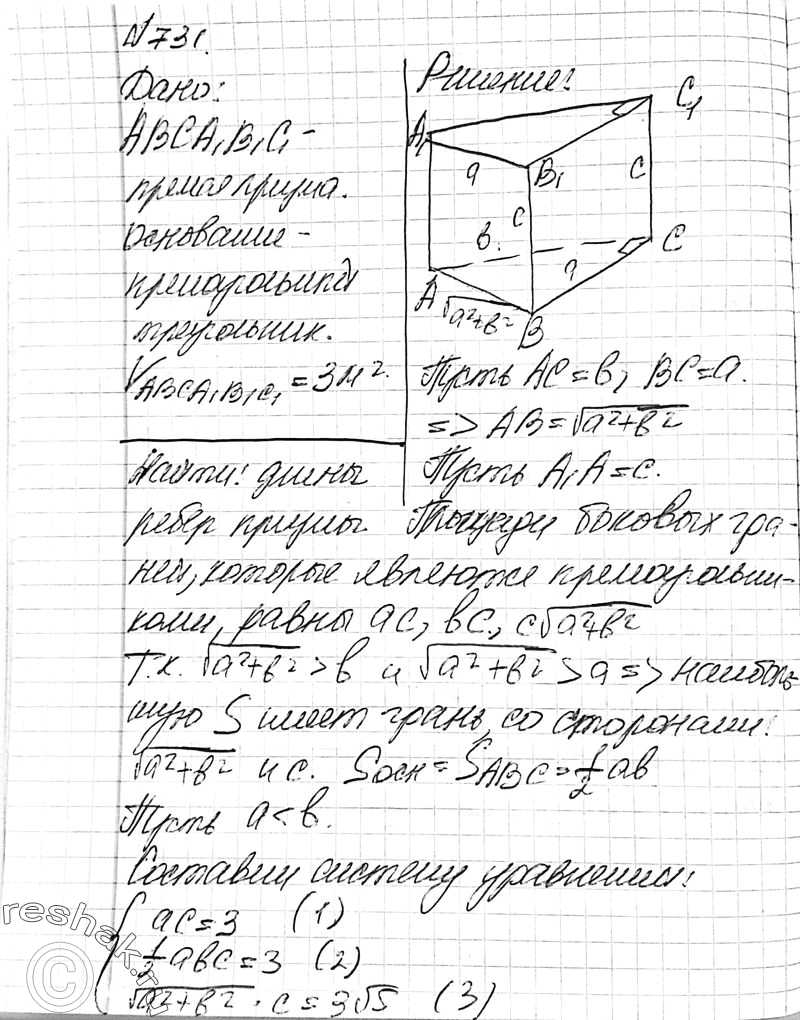 №731.
Дано:
ABCA₁B₁C₁ –
прямая призма.
основание –
прямоугольный
треугольник.
V_{ABCA₁B₁C₁} = 3м².
Найти: длины
ребер призмы.
Решение:
A₁
C₁
B₁
a
c
c
в.
a
A
C
B
√(a²+в²)
Пусть AC = в, BC = a.
=> AB = √(a²+в²)
Пусть A₁A = c.
Площади боковых гра-
ней, которые являются прямоугольни-
ками, равны ac, вc, c√(a²+в²)
Т.к. √(a²+в²) > в и √(a²+в²) > a => наиболь-
шую S имеет грань, со сторонами:
√(a²+в²) и c. Sосн = S_{ABC} = ½ aв
Пусть a < в.
Составим систему уравнений:
{ ac = 3 (1)
½ aвc = 3 (2)
√(a²+в²) · c = 3√5 (3)
reshak.ru
©